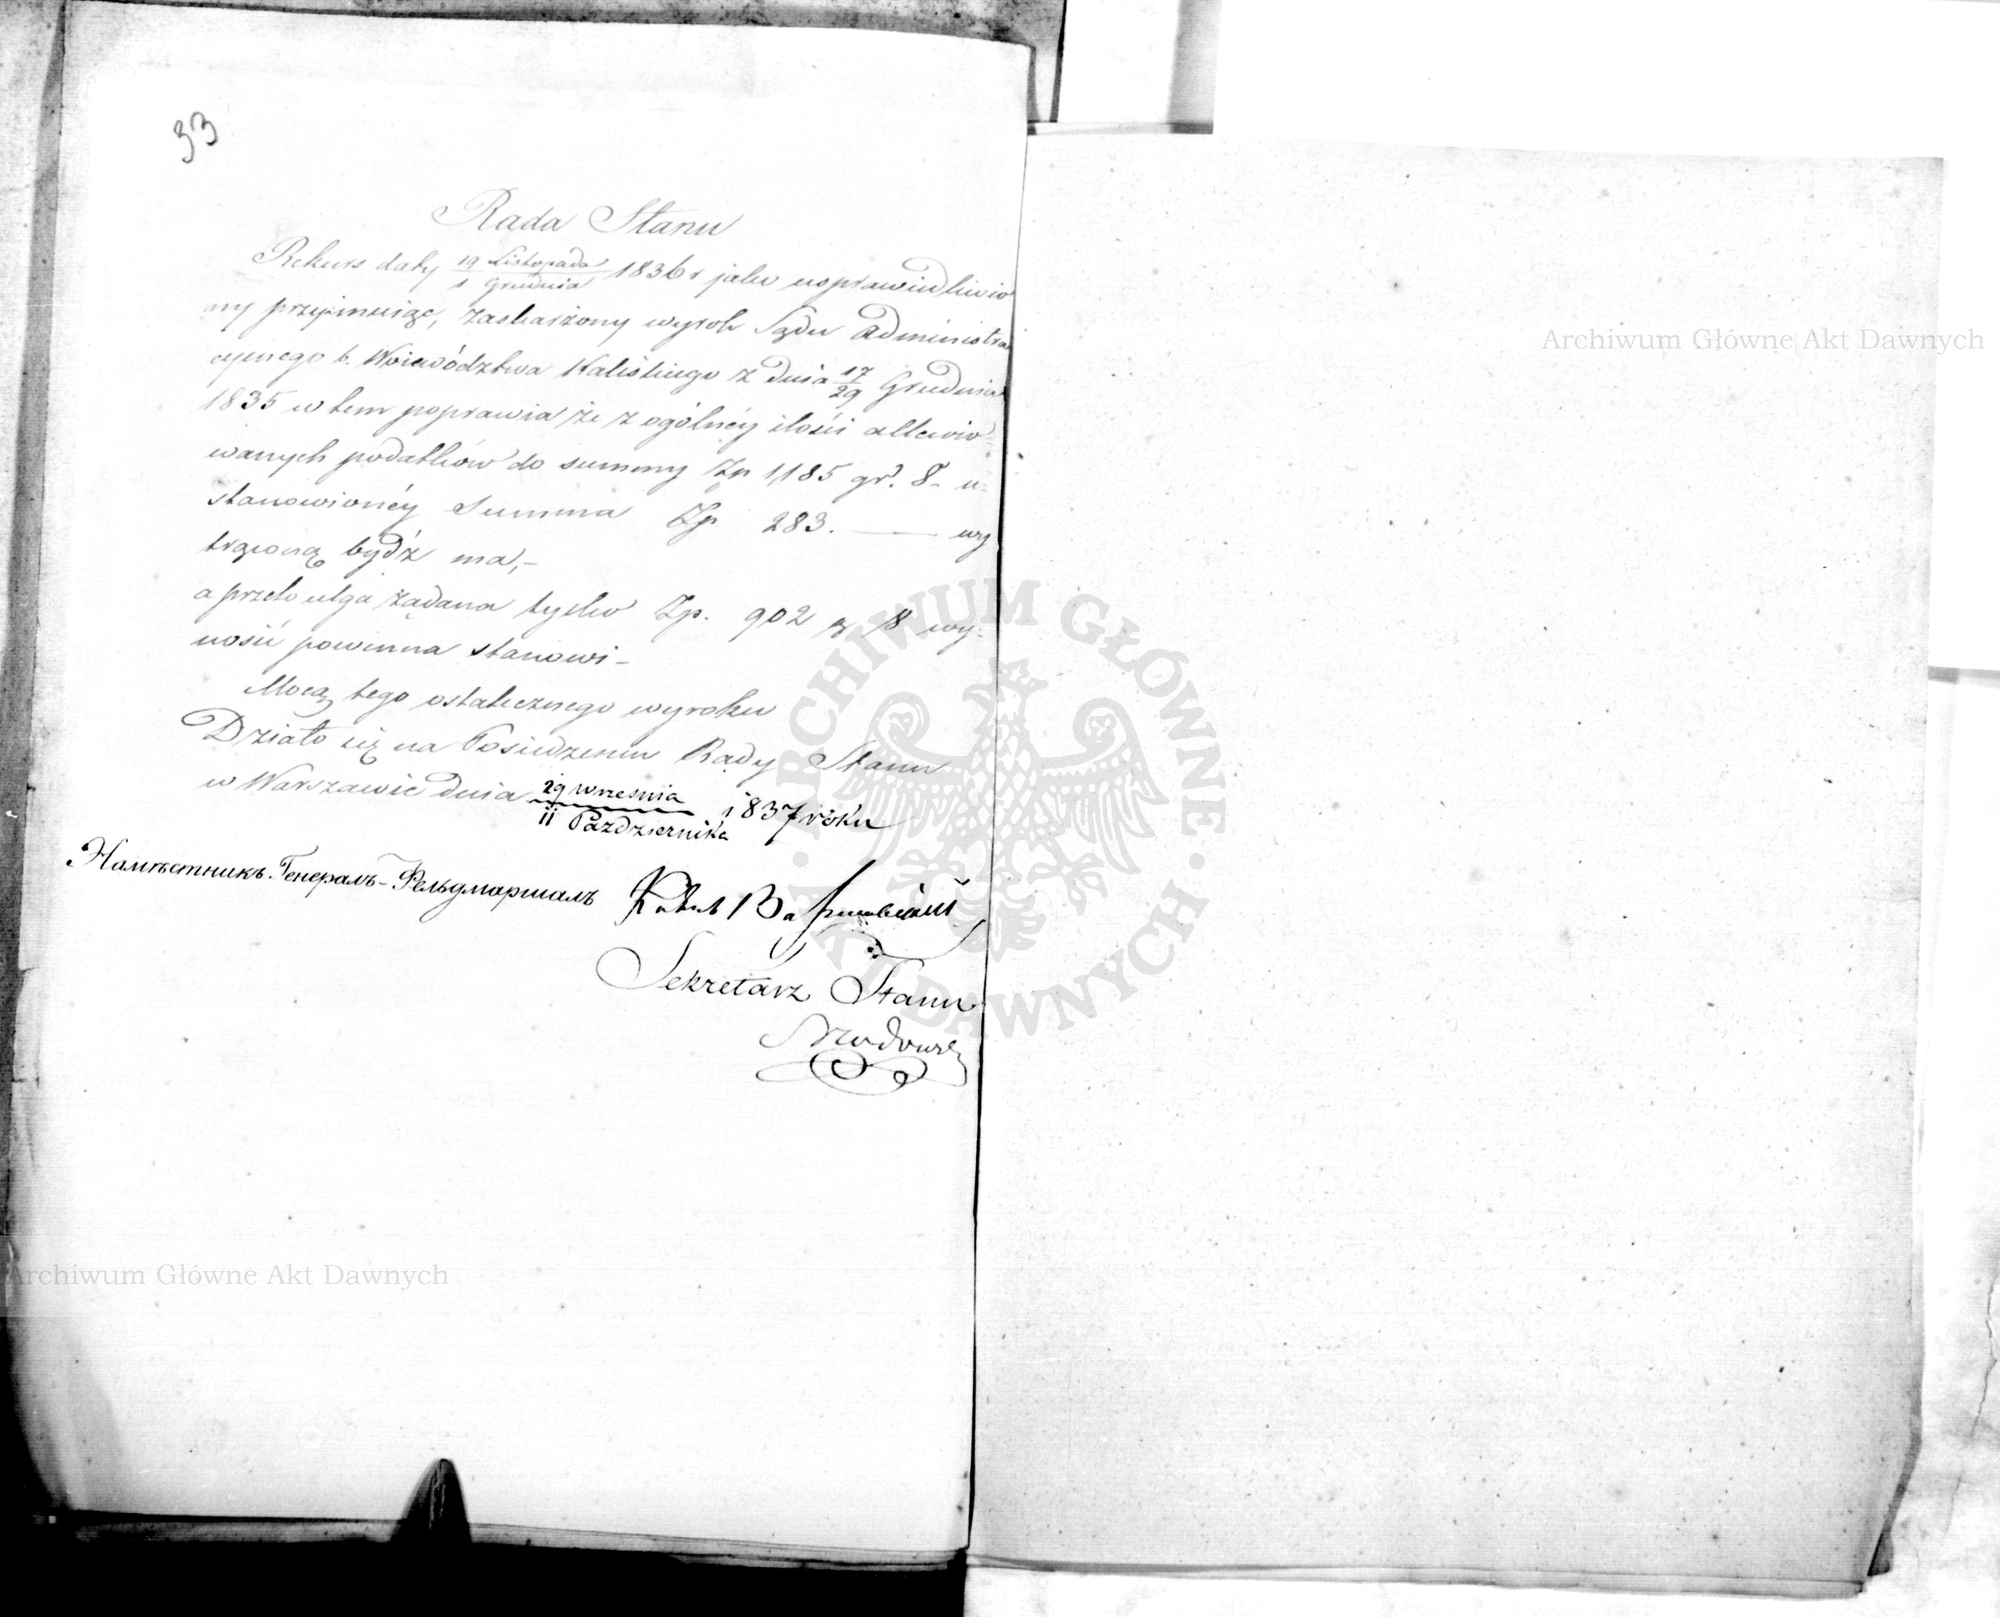 33
Rada Stanu
Rekurs daty 19 Listopada / 1 Grudnia 1836 r jako usprawiedliwio
ny przyjmując, zaskarżony wyrok Sądu Administra
cyjnego b. Woiewództwa Kaliskiego z dnia 17/29 Grudnia
1835 w tem poprawia że z ogólnéy ilości allewio-
wanych podatków do summy Zp 1,185 gr. 8 - u-
stanowionéy Summa Zp 283. — wy
trąconą bydź ma,-
a przeto ulga żądana tylko Zp. 902 g 8 wy-
nosić powinna stanowi-
Mocą tego ostatecznego wyroku
Działo się na Posiedzeniu Rady Stanu
w Warszawie dnia 29 Września / 11 Października 1837 roku
Намѣстникъ Генералъ-Фельдмаршалъ
Sekretarz Stanu
Archiwum Główne Akt Dawnych
Archiwum Główne Akt Dawnych
ARCHIWUM GŁÓWNE AKT DAWNYCH